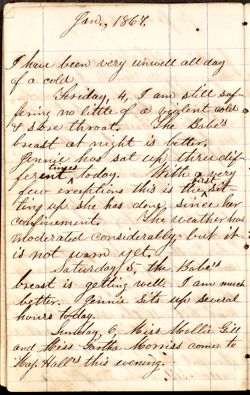 Jan., 1867.
I have been very unwell all day
of a cold.
Friday, 4, I am still suf-
fering no little of a violent cold
& sore throat. The Babe's
breast at night is better.
Jennie has sat up three dif-
ferent times today. With a very
few exceptions this is the first sit-
ting up she has done, since her
confinement. The weather has
moderated considerably but it
is not warm yet.
Saturday, 5, the Babe's
breast is getting well. I am much
better. Jennie sits up several
hours today.
Sunday, 6, Miss Mollie Gill
and Miss Morriss come to
Maj. Hall's this evening.